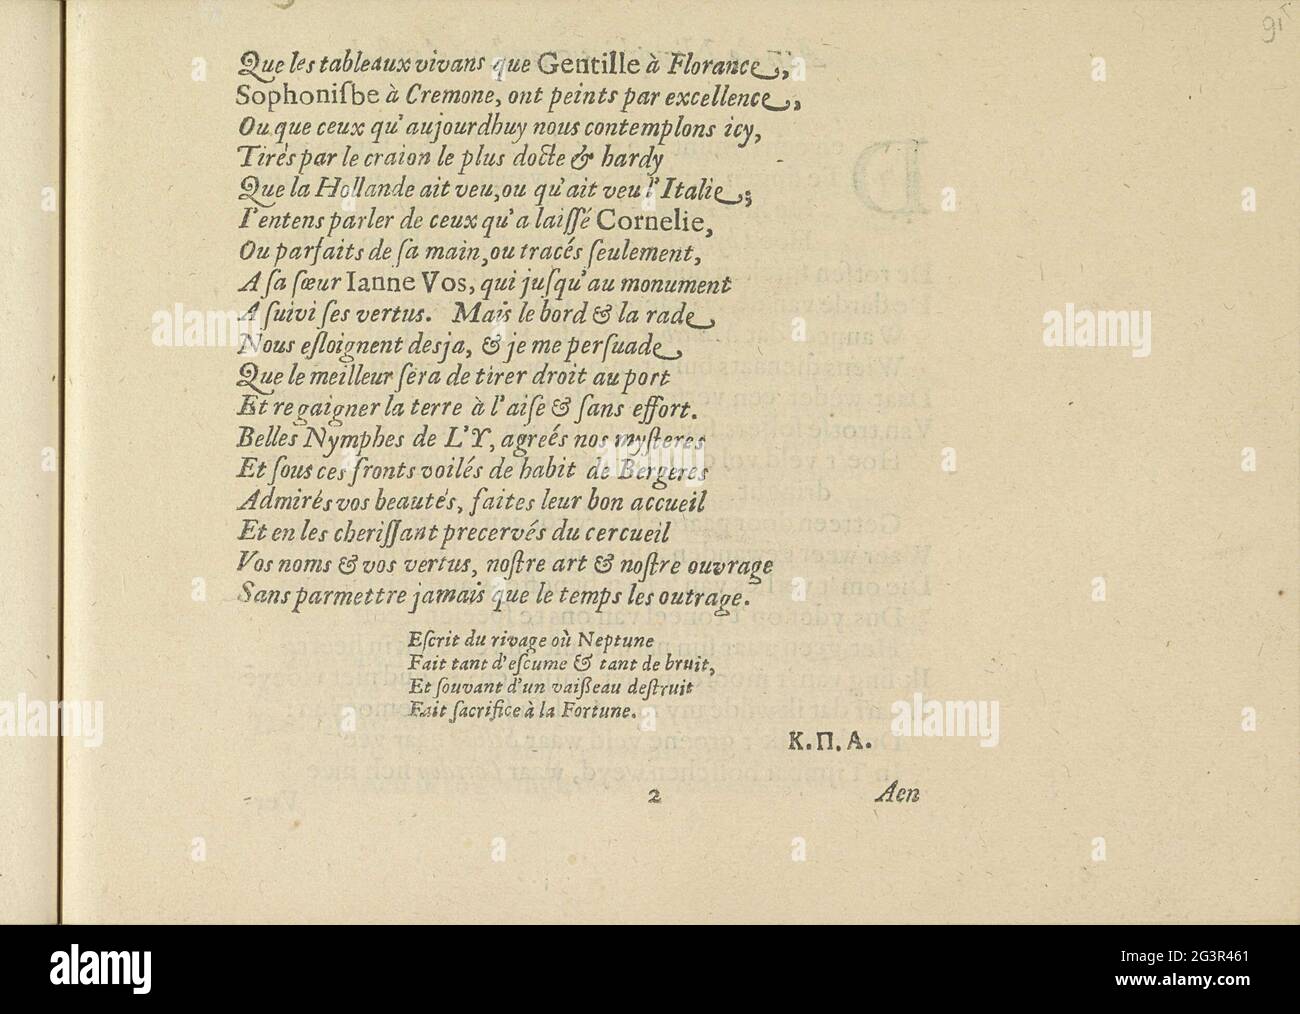 91
Que les tableaux vivans que Gentille à Florance,
Sophonisbe à Cremone, ont peints par excellence,
Ou que ceux qu'aujourdhuy nous contemplons icy,
Tirés par le craion le plus docte & hardy
Que la Hollande ait veu, ou qu'ait veu l'Italie;
I'entens parler de ceux qu'a laissé Cornelie,
Ou parfaits de sa main, ou tracés seulement,
A sa sœur Ianne Vos, qui jusqu'au monument
A suivi ses vertus. Mais le bord & la rade
Nous esloignent desja, & je me persuade
Que le meilleur sera de tirer droit au port
Et regaigner la terre à l'aise & sans effort.
Belles Nymphes de L'Y, agreés nos mysteres
Et sous ces fronts voilés de habit de Bergeres
Admirés vos beautés, faites leur bon accueil
Et en les cherissant precervés du cercueil
Vos noms & vos vertus, nostre art & nostre ouvrage
Sans parmettre jamais que le temps les outrage.
Escrit du rivage où Neptune
Fait tant d'escume & tant de bruit,
Et souvant d'un vaißeau destruit
Fait sacrifice à la Fortune.
K.Π.A.
2 Aen
alamy
Image ID: 2G3R461
www.alamy.com